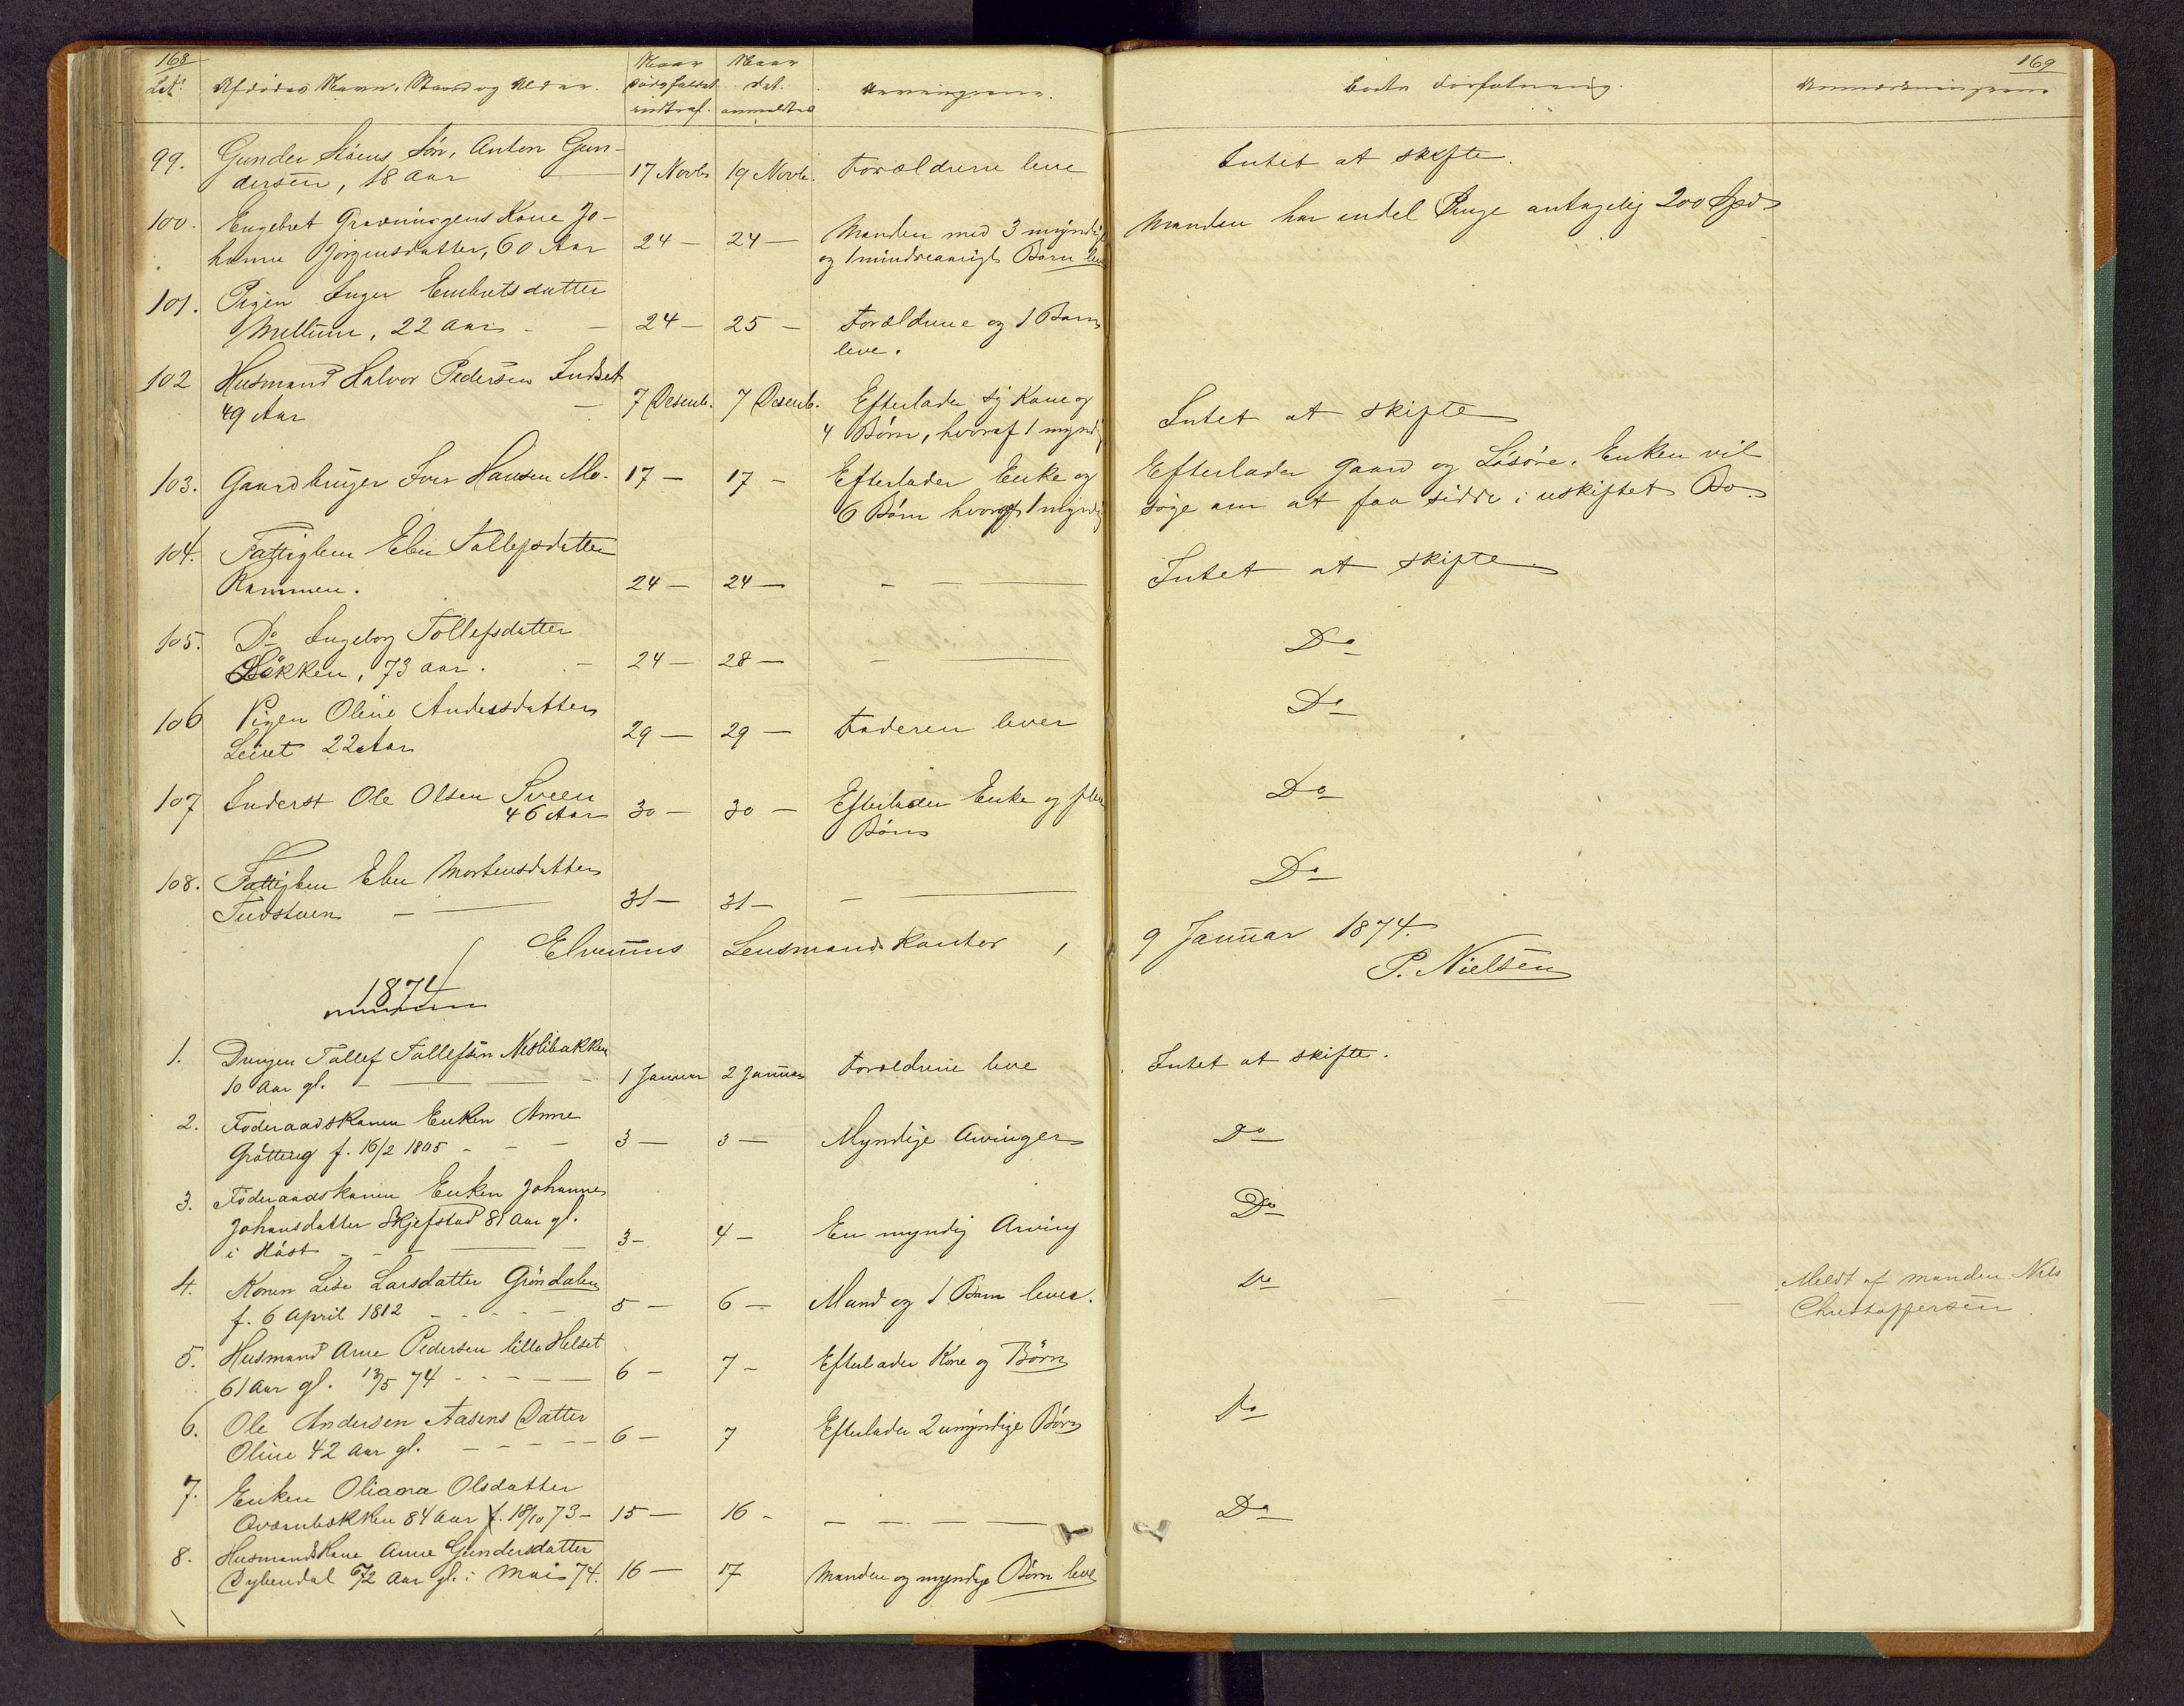 168
169
Afdødes Navn, Stand og Alder.
Naar
Dødsfaldet
indtraf.
Naar
det
anmeldtes
Arvingerne.
Boets Forfatning.
99. Gunder Moens Søn, Anton Gun-
dersen, 18 Aar — 17 Novbr 19 Novb. Forældrene leve Intet at skifte.
100. Engebret Gravningens Kone Jo-
hanne Jörgensdatter, 60 Aar 24 — 24 — Manden med 3 myndige
og 1 mindreaarigt Barn leve
Manden har endel Penge antagelig 200 Spd
101. Pigen Inger Embretsdatter
Mellum, 22 Aar — 24 — 25 — Forældrene og 1 Barn
leve.
102 Husmand Halvor Pedersen Indset
49 Aar — 7 Desemb. 7 Desemb. Efterlader sig Kone og
4 Børn, hvoraf 1 myndig
Intet at skifte
103. Gaardbruger Iver Hansen Mo. 17 — 17 — Efterlader Enke og
6 Børn hvoraf 1 myndig
Efterlader Gaard og Løsøre. Enken vil
søge om at faa sidde i uskiftet Bo.
104. Fattiglem Eli Tollefsdatter
Rammen. 24 — 24 — — — Intet at skifte
105. Do Ingeborg Tollefsdatter
Løkken, 73 Aar. — 24 — 28 — — — Do
106 Pigen Oline Andersdatter
Leiret 22 Aar 29 — 29 — Faderen lever Do
107 Inderst Ole Olsen Sveen
46 Aar 30 — 30 — Efterlader Enke og flere
Børn Do
108. Fattiglem Eli Mortensdatter
— — 31 — 31 — — — Do
Elverums Lensmandskontor, 9 Januar 1874.
P. Nielsen
1874
1. Drengen Tollef Tollefsen Neslibakken
10 Aar gl. — 1 Januar 2 Januar Forældrene leve Intet at skifte.
2. Føderaadskonen Enken Anne
Grøtting f. 16/2 1805 - - — 3 — 3 — Myndige Arvinger Do
3. Føderaadskonen Enken Johanne
Johansdatter Skjefstad 81 Aar gl.
i Høst - - — 3 - 4 - En myndig Arving Do
4. Konen Lise Larsdatter Gröndalen
f. 6 April 1812 - - - — 5 — 6 — Mand og 1 Barn lever. Do — — — — Meldt af manden Nils
Christoffersen.
5. Husmand Arne Pedersen lille Helset
61 Aar gl. 13/5 74 - - - — 6 — 7 - Efterlader Kone og Börn
6. Ole Andersen Aasens Datter
Oline 42 Aar gl. - - - - - 6 — 7 Efterlader 2 umyndige Börn Do
7. Enken Oliana Olsdatter
Qværnbækken 84 Aar f. 18/10 73 - 15 — 16 - — — — — Do
8. Husmandskone Anne Gundersdatter
Dybendal 72 Aar gl. i Mai 74. 16 — 17 Manden og myndige Børn leve